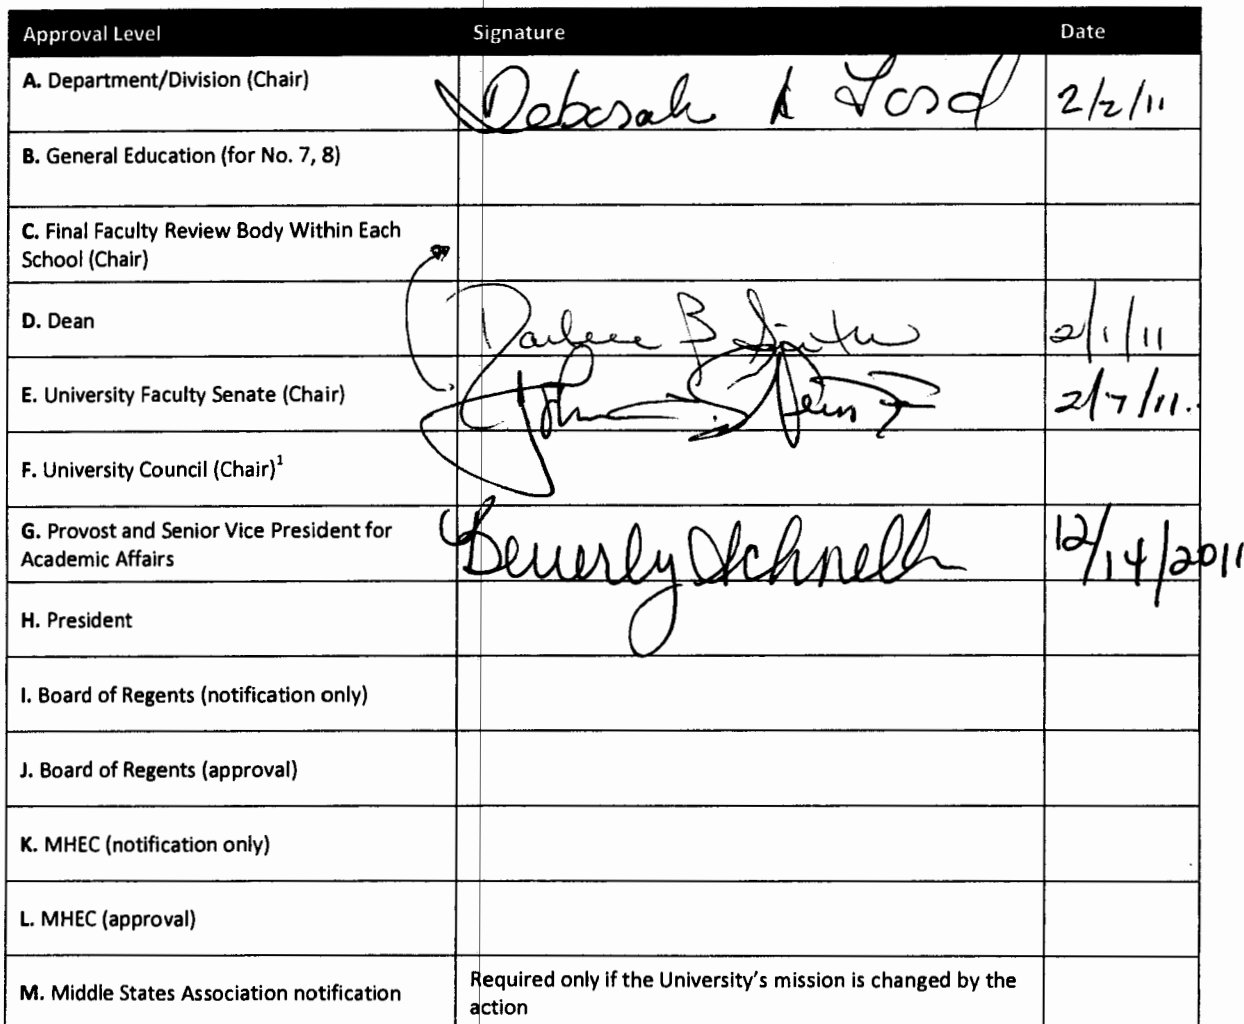 Approval Level Signature Date
A. Department/Division (Chair) Deborah A Ford 2/2/11
B. General Education (for No. 7, 8)
C. Final Faculty Review Body Within Each
School (Chair)
D. Dean Darlene B Smith 2/1/11
E. University Faculty Senate (Chair) John 2/7/11.
F. University Council (Chair)¹
G. Provost and Senior Vice President for
Academic Affairs Beverly Schnell 12/14/2011
H. President
I. Board of Regents (notification only)
J. Board of Regents (approval)
K. MHEC (notification only)
L. MHEC (approval)
M. Middle States Association notification Required only if the University's mission is changed by the
action